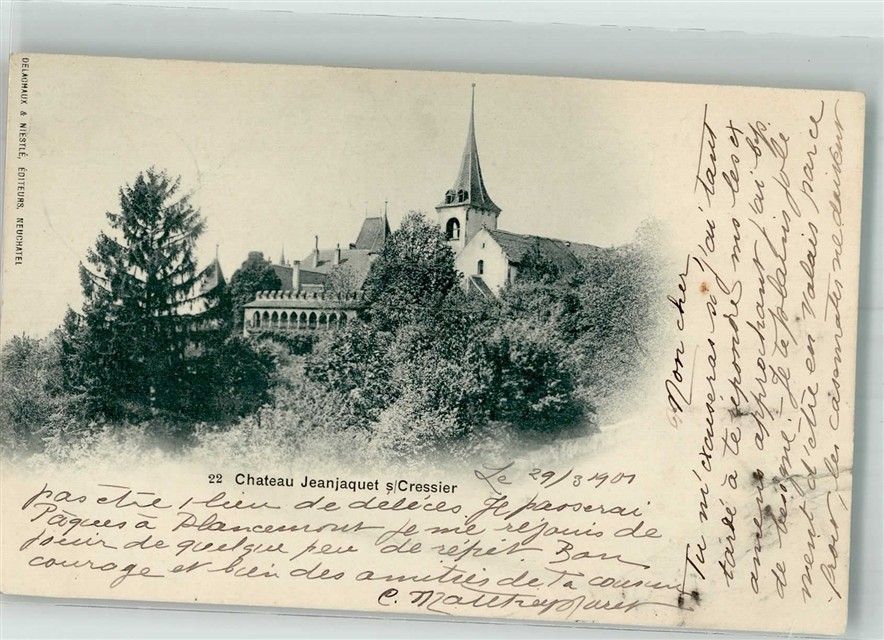 DELACHAUX & NIESTLÉ, ÉDITEURS, NEUCHATEL
22 Chateau Jeanjaquet s/Cressier
Le 29/3 1901
Mon cher
Tu m'excuseras si j'ai tant
tardé à te répondre ms les ex
amens approchant j'ai bp.
de besogne. Je te plains joli
ment d'être en Valais parce
pour, les casemates ne doivent
pas être 1 lieu de délices. Je passerai
Pâques à Plancemont je me réjouis de
jouir de quelque peu de répit. Bon
courage et bien des amitiés de Ta cousine
C. Matthey